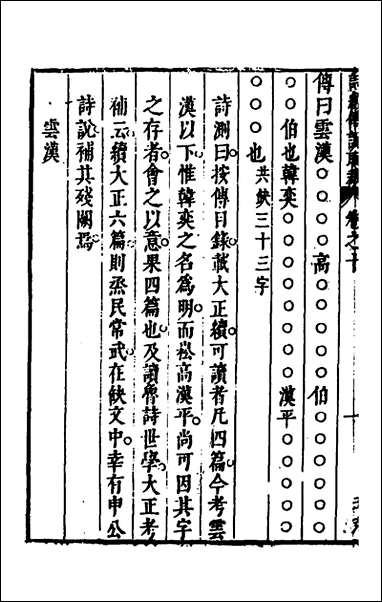 詩經傳說取裁 卷之十
傳曰雲漢○○○○高○○○○○伯○○○○○○
○○伯也韓奕○○○○○○○○漢平○○○○○
○○○也 共缺三十三字
詩測曰按傳目錄載大正續可讀者凡四篇今考雲
漢以下惟韓奕之名爲明而崧高漢平尚可因其字
之存者會之以意果四篇也及讀魯詩世學大正考
補云續大正六篇則烝民常武在缺文中幸有申公
詩說補其殘闕焉
雲漢